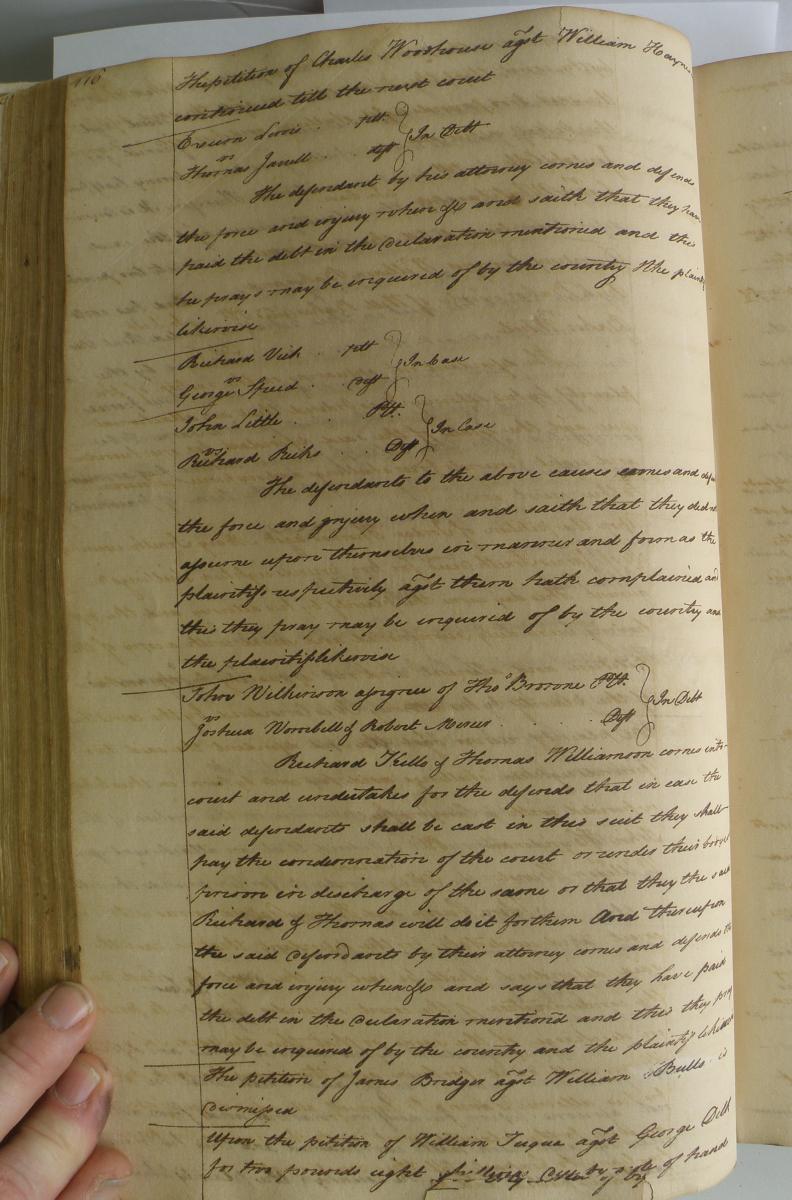 116
The petition of Charles Woodhouse agst William Haynes
continued till the next court
Exum Lewis . pltt } In Debt
vs
Thomas Jarrell . deft
The defendant by his attorney comes and defends
the force and injury when &c and saith that they have
paid the debt in the declaration mentioned and the
he prays may be enquired of by the country & the plaintiff
likewise
Richard Vick . pltt } In Case
vs
George Speed . Deft
John Little . . Pltt. } In Case
vs
Richard Ricks . . Deft
The defendants to the above causes comes and def
the force and injury when and saith that they did not
assume upon themselves in manner and form as the
plaintiffs respectively agst them hath complained and
this they pray may be enquired of by the country and
the plaintiff likewise
John Wilkinson assignee of Thos Browne Pltt. } In Debt
vs
Joshua Worrbell & Robert Mercer . . . . Deft
Richard Kello & Thomas Williamson comes into
court and undertakes for the defends that in case the
said defendants shall be cast in this suit they shall
pay the condemnation of the court or render their bodies
prison in discharge of the same or that they the said
Richard & Thomas will do it for them And thereupon
the said defendants by their attorney comes and defends the
force and injury when &c and says that they have paid
the debt in the declaration mentiond and this they pray
may be enquired of by the country and the plaintiff likewise
The petition of James Bridger agst William Bulls is
dismissed
Upon the petition of William agst George
for two pounds eight shillings by note of hand